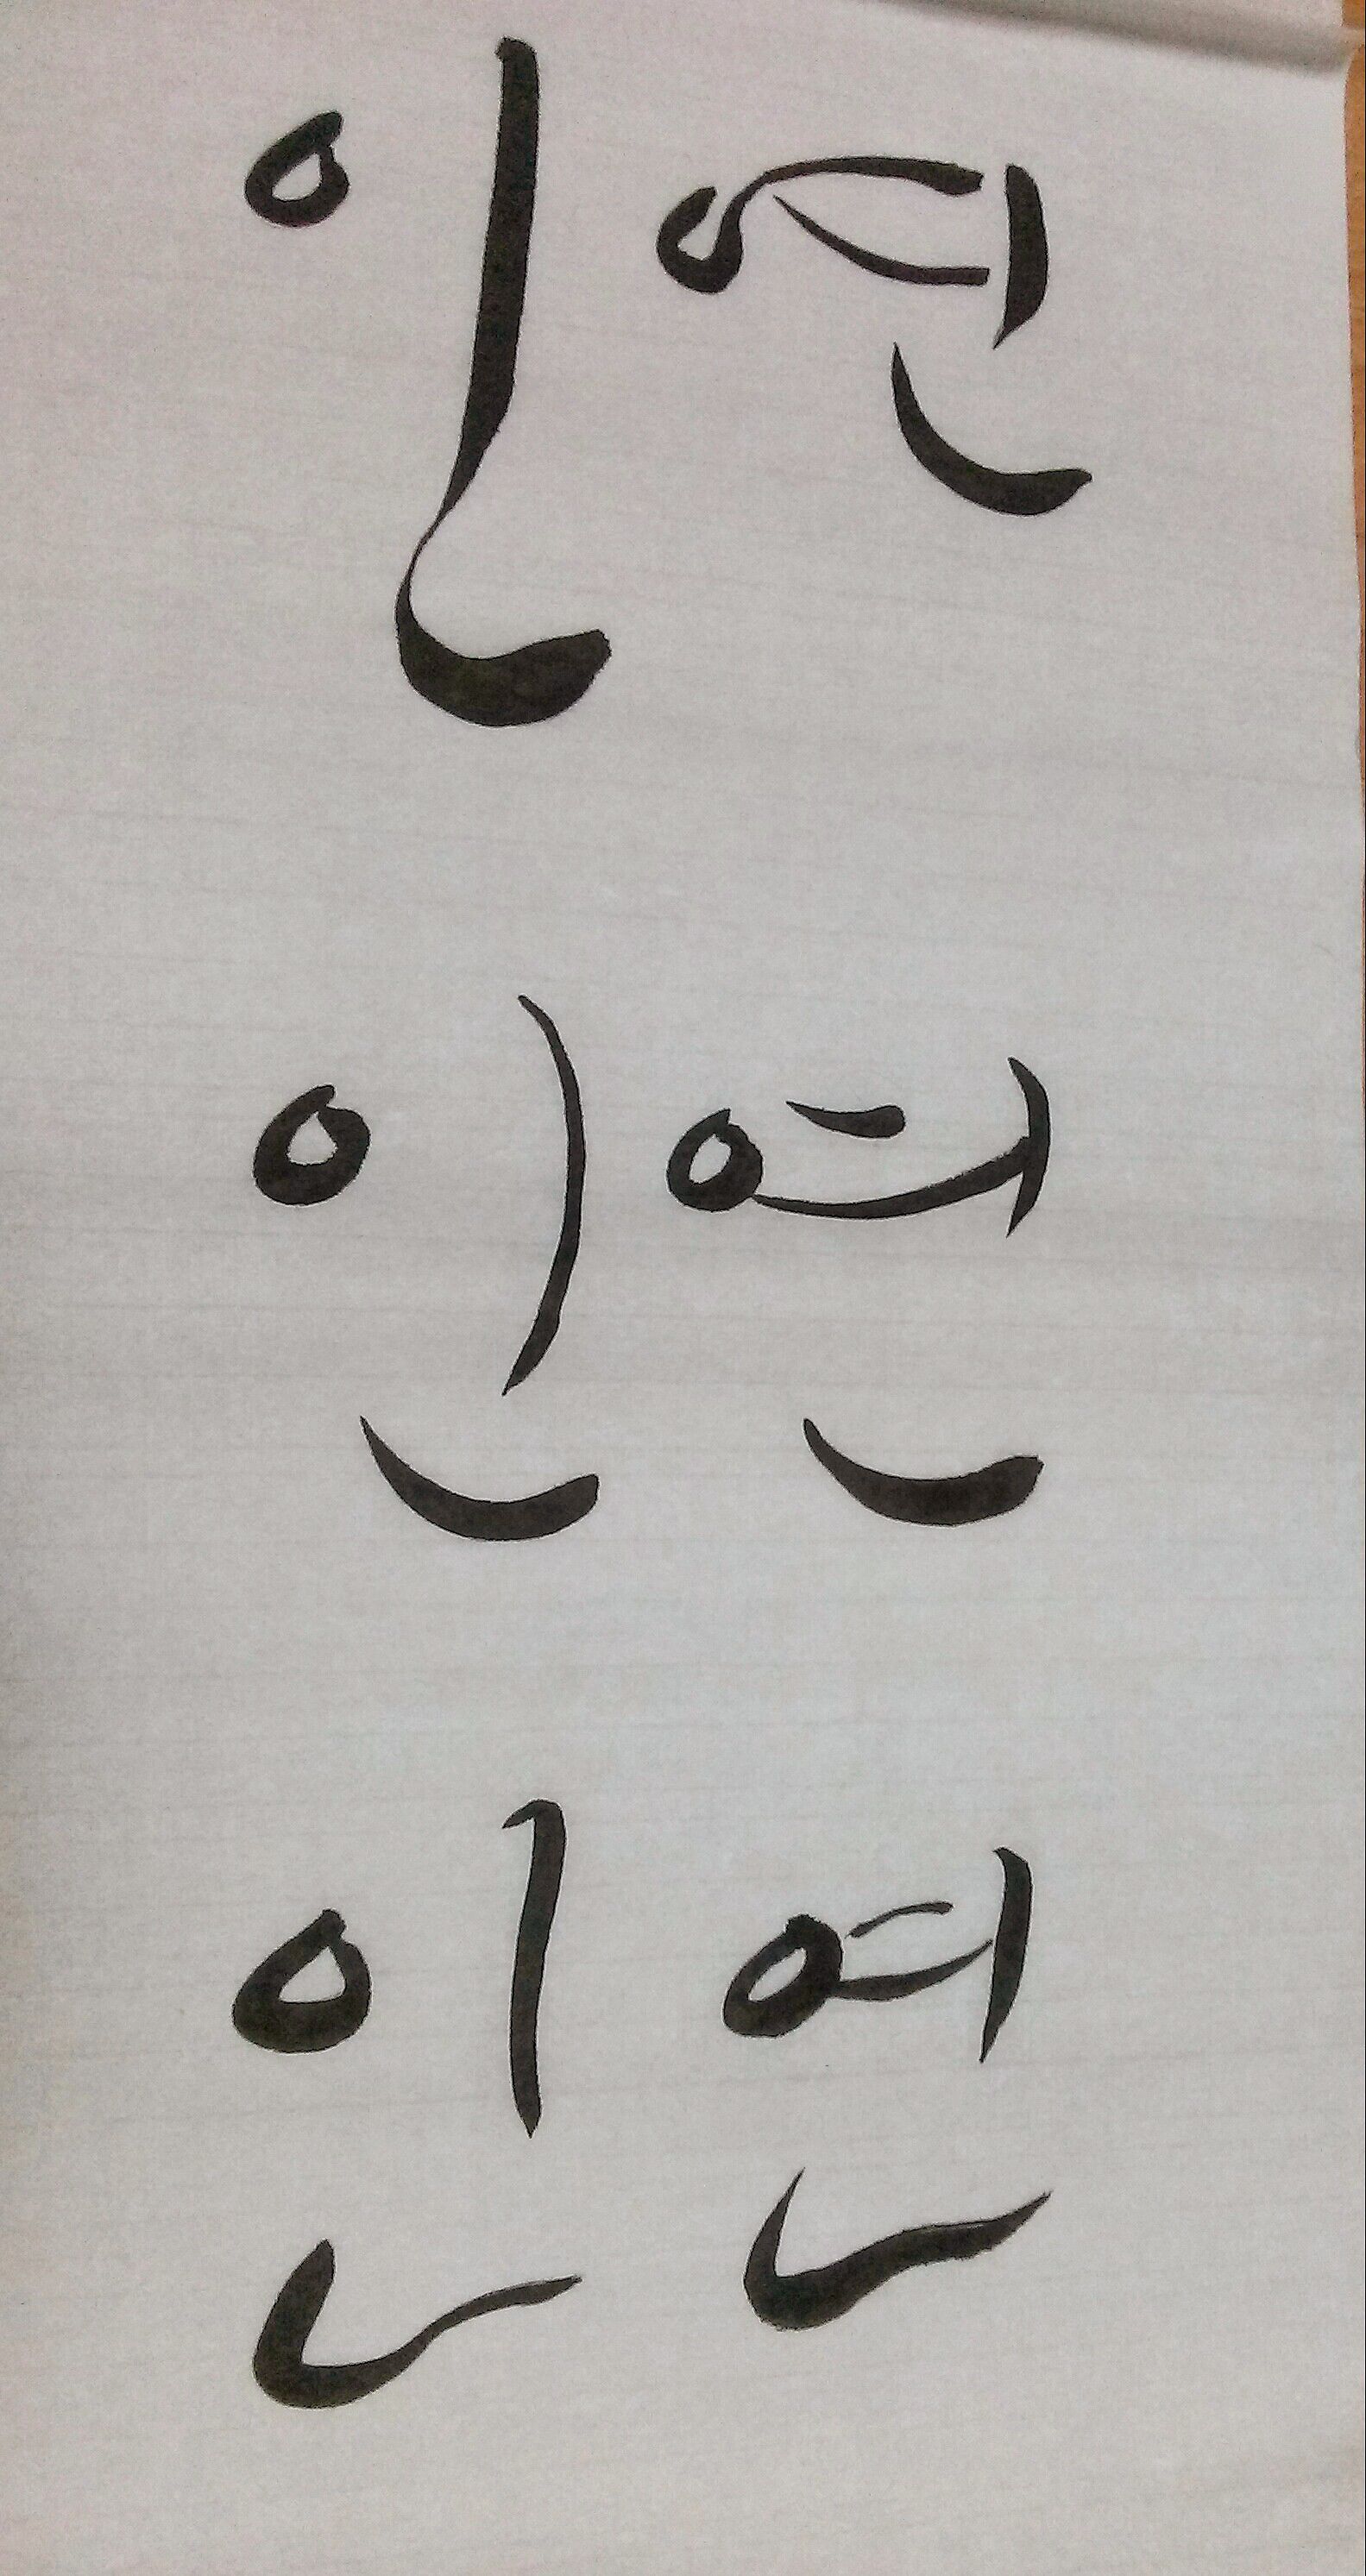 인연
인연
인연